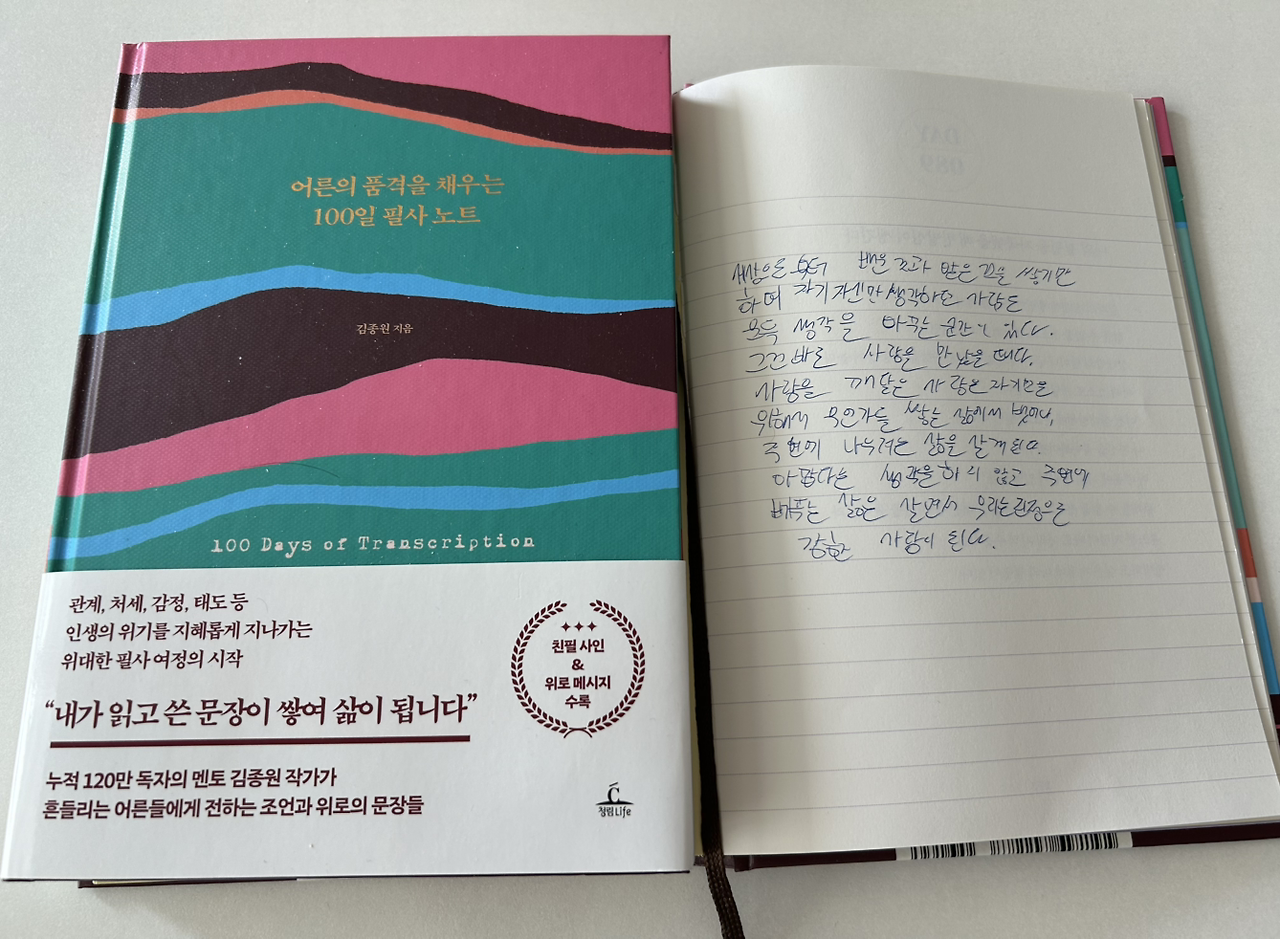 어른의 품격을 채우는
100일 필사 노트
김종원 지음
100 Days of Transcription
관계, 처세, 감정, 태도 등
인생의 위기를 지혜롭게 지나가는
위대한 필사 여정의 시작
“내가 읽고 쓴 문장이 쌓여 삶이 됩니다”
누적 120만 독자의 멘토 김종원 작가가
흔들리는 어른들에게 전하는 조언과 위로의 문장들
친필 사인
&
위로 메시지
수록
청림Life
DAY
089
세상으로 부터 배운 것과 받은 것을 쌓기만
하며 자기 자신만 생각하던 사람도
문득 생각을 바꾸는 순간이 있다.
그건 바로 사랑을 만났을 때다.
사랑을 깨달은 사람은 자기만을
위해서 무언가를 쌓는 삶에서 벗어나,
주변에 나누려는 삶을 살게된다.
아깝다는 생각을 하지 않고 주변에
베푸는 삶을 살면서 우리는 진정으로
강한 사람이 된다.